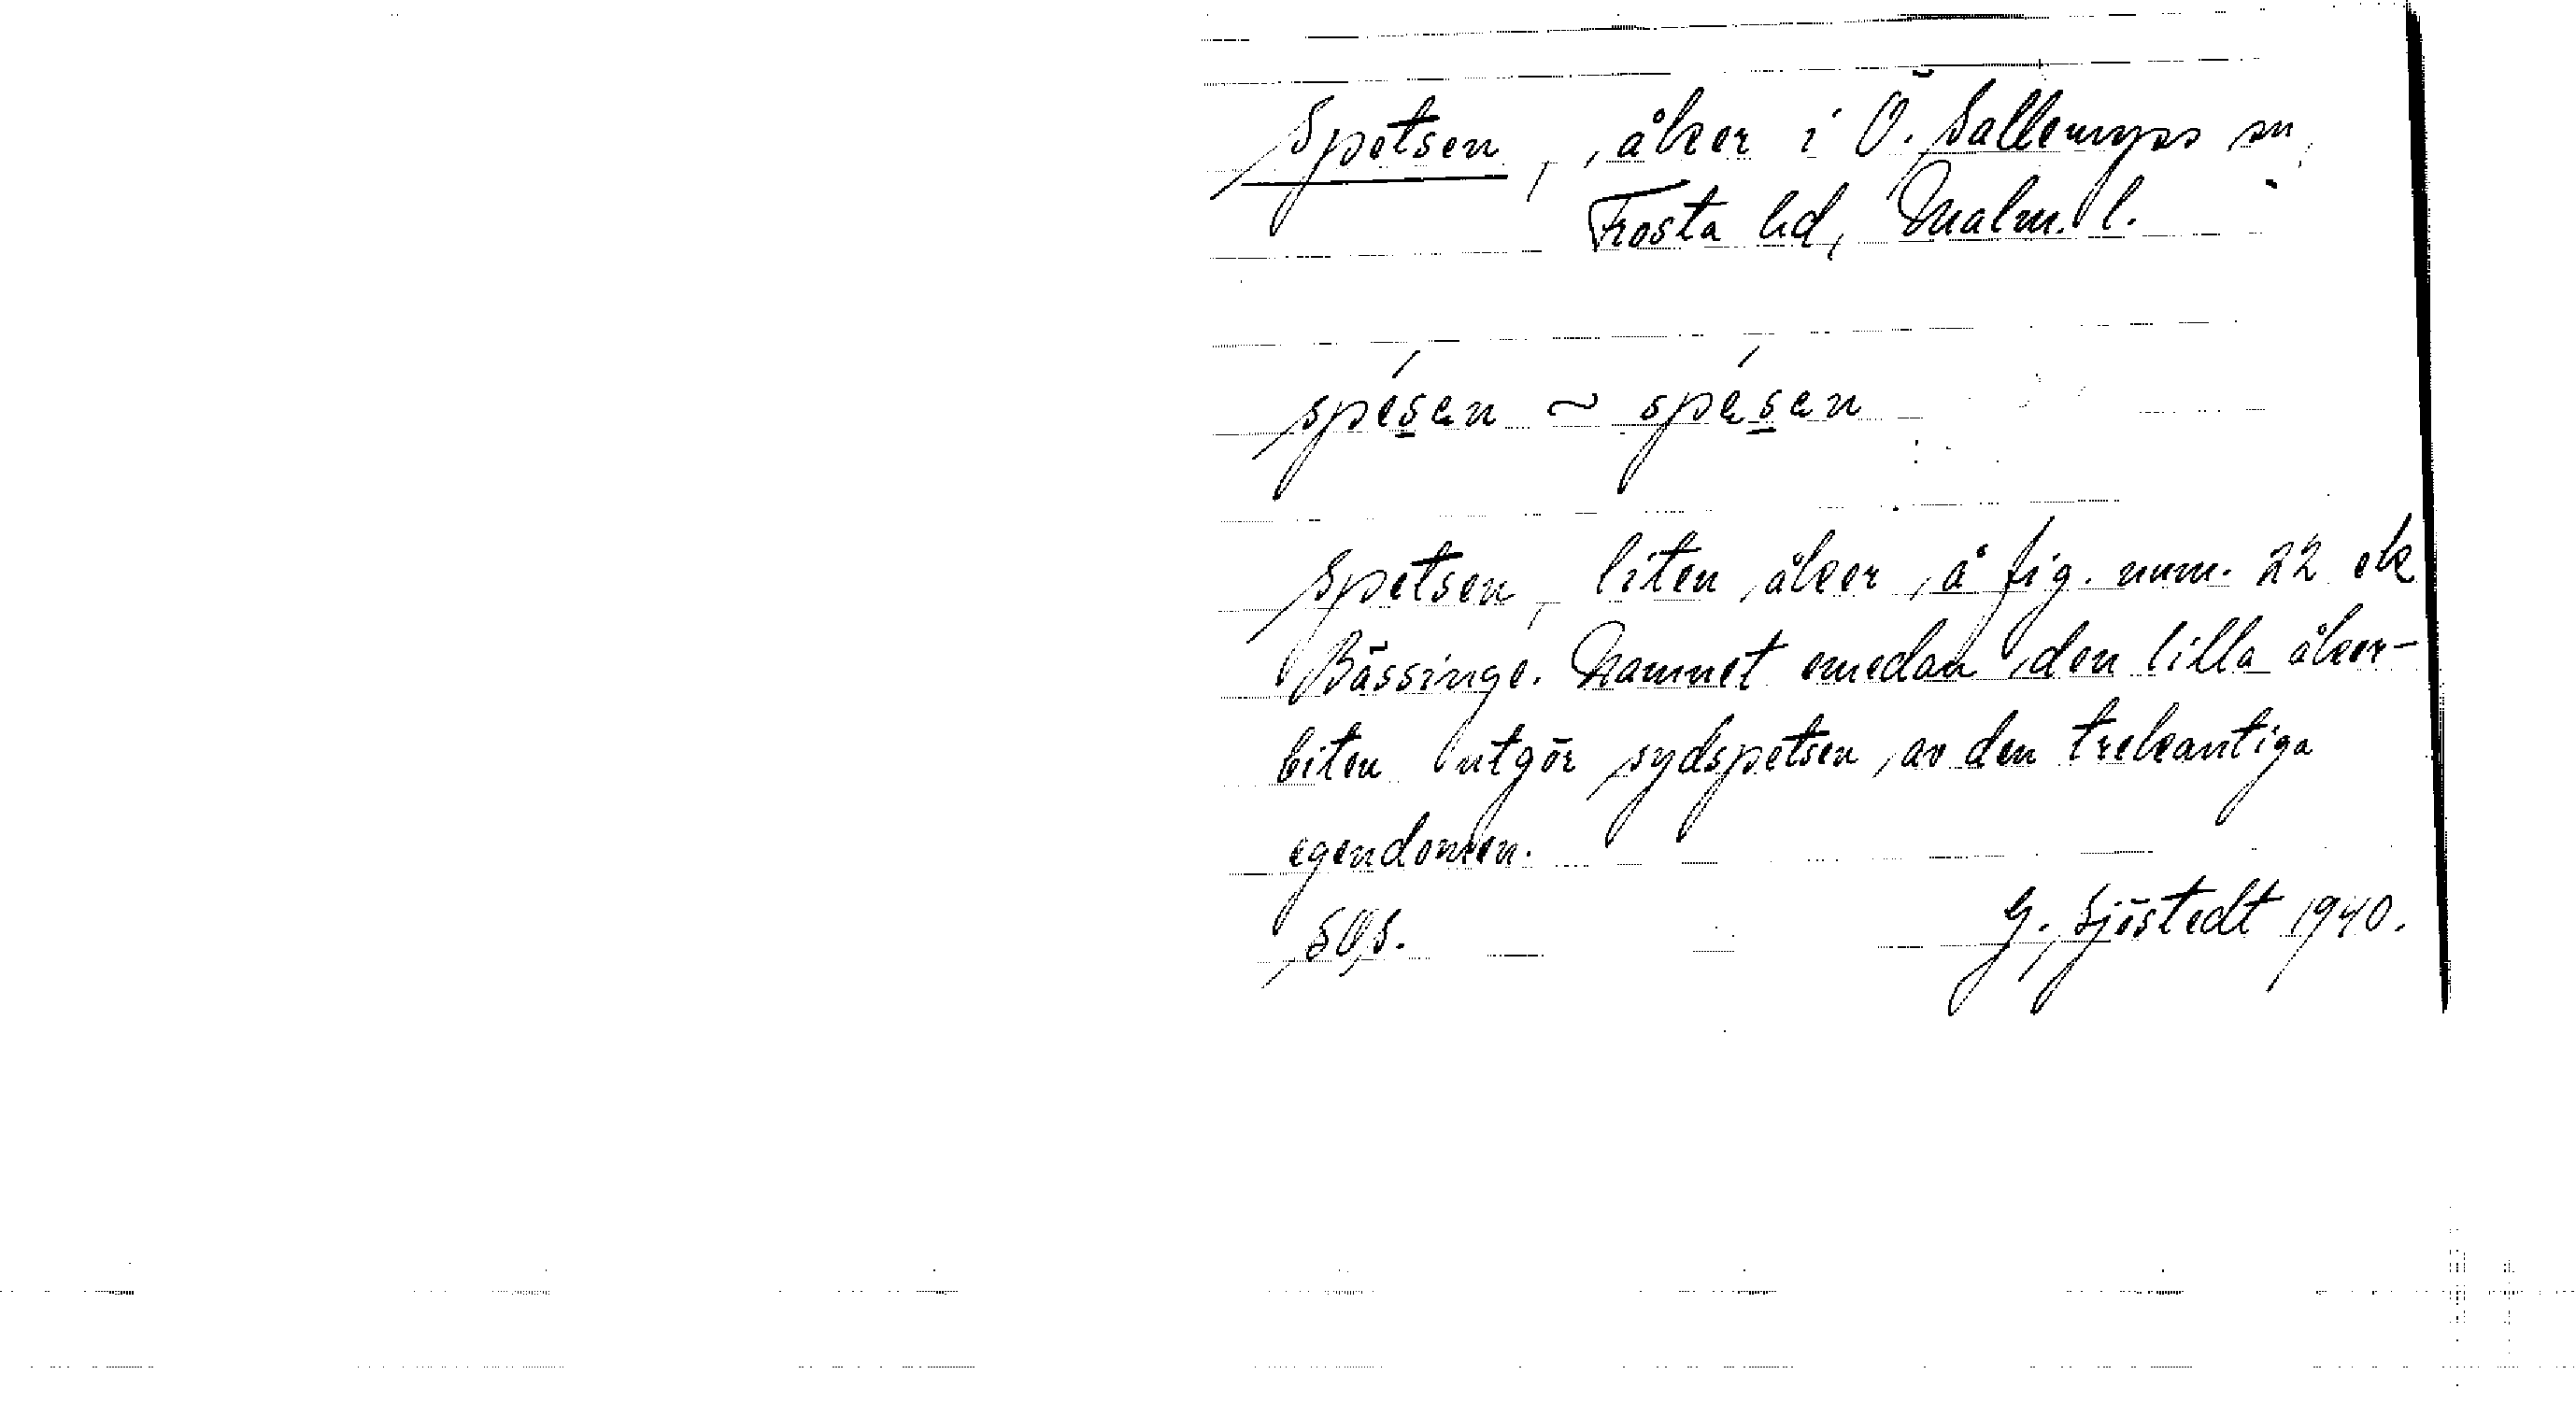 Spetsen, åker i Ö. Sallerups sn,
Frosta hd, Malm. l.
spésen ~ spésen
Spetsen, liten åker å fig. num. 22 ek
Bässinge. Namnet emedan den lilla åker-
biten utgör sydspetsen av den trekantiga
egendomen.
SOS.
G. Sjöstedt 1940.